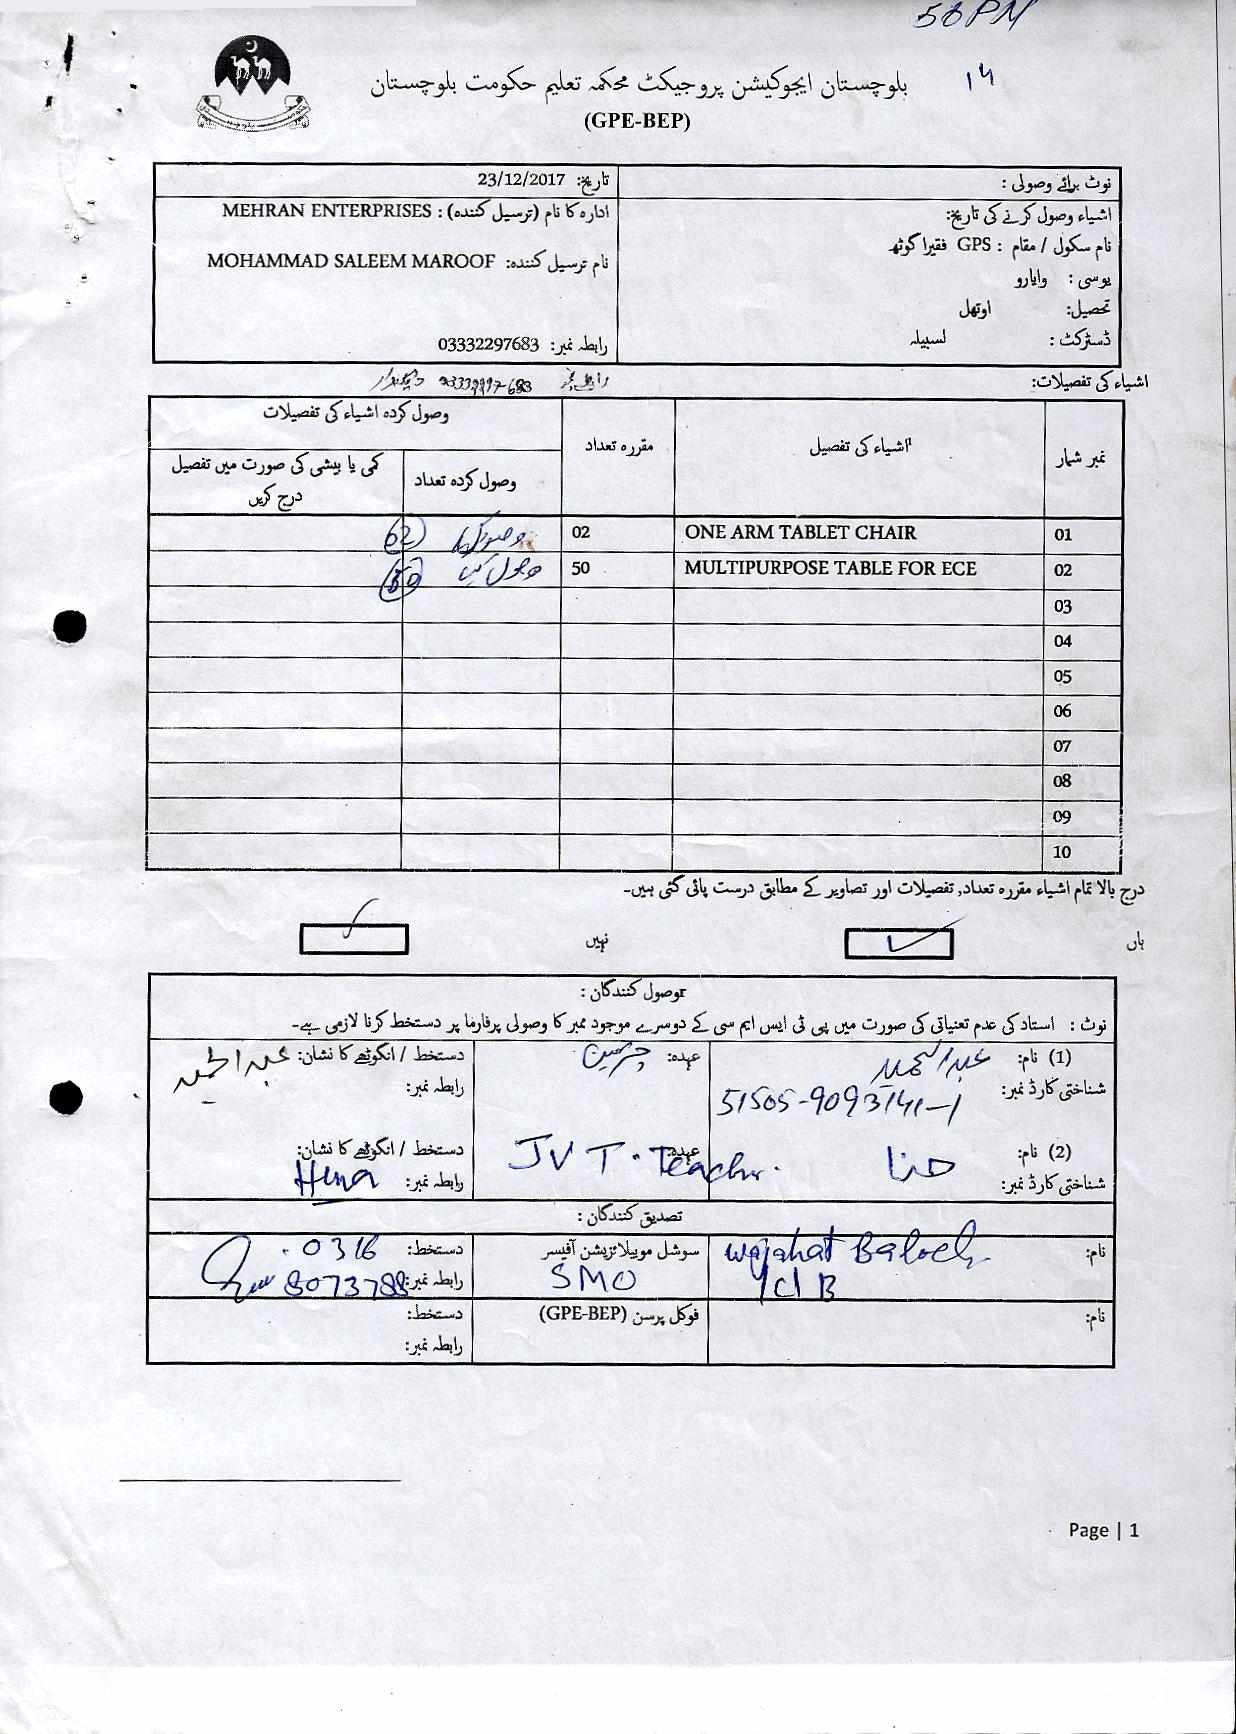 50PM
14
بلوچستان ایجوکیشن پروجیکٹ محکمہ تعلیم حکومت بلوچستان
(GPE-BEP)
نوٹ برائے وصولی :
تاریخ: 23/12/2017
اشیاء وصول کرنے کی تاریخ:
ادارہ کا نام (ترسیل کنندہ) : MEHRAN ENTERPRISES
نام سکول / مقام : GPS فقیرا گوٹھ
نام ترسیل کنندہ: MOHAMMAD SALEEM MAROOF
یوسی : وایارو
تحصیل: اوتھل
ڈسٹرکٹ : لسبیلہ
رابطہ نمبر: 03332297683
اشیاء کی تفصیلات:
رابطہ نمبر 03332297683
نمبر شمار
اشیاء کی تفصیل
مقررہ تعداد
وصول کردہ اشیاء کی تفصیلات
وصول کردہ تعداد
کمی یا بیشی کی صورت میں تفصیل درج کریں
01 ONE ARM TABLET CHAIR 02 وصول کیا 02
02 MULTIPURPOSE TABLE FOR ECE 50 وصول کیا 50
03
04
05
06
07
08
09
10
درج بالا تمام اشیاء مقررہ تعداد, تفصیلات اور تصاویر کے مطابق درست پائی گئی ہیں۔
ہاں ✓ نہیں ✓
وصول کنندگان :
نوٹ : استاد کی عدم تعنیاتی کی صورت میں پی ٹی ایس ایم سی کے دوسرے موجود ممبر کا وصولی پرفارما پر دستخط کرنا لازمی ہے۔
(1) نام: عبدالحمید عہدہ: چرمین دستخط / انگوٹھے کا نشان: عبدالحمید
شناختی کارڈ نمبر: 51505-9093141-1 رابطہ نمبر:
(2) نام: حنا عہدہ: JV T. Teacher. دستخط / انگوٹھے کا نشان:
شناختی کارڈ نمبر: رابطہ نمبر: Hina
تصدیق کنندگان :
نام: Wajahat Baloch سوشل موبیلائزیشن آفیسر دستخط: 0316
SMO رابطہ نمبر: 8073788
نام: فوکل پرسن (GPE-BEP) دستخط:
رابطہ نمبر:
Page | 1